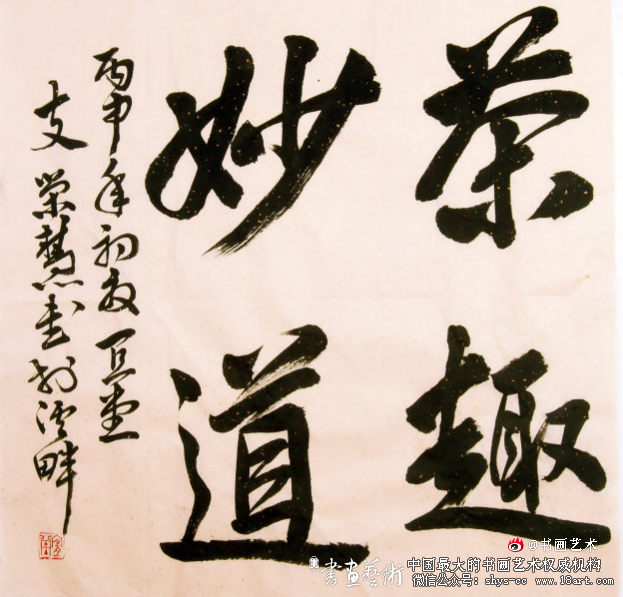 茶趣
妙道
丙申年初
支荣慧书于畔
@书画艺术
書画藝術
中国最大的书画艺术权威机构
微信公众号：shys-cc www.18art.com